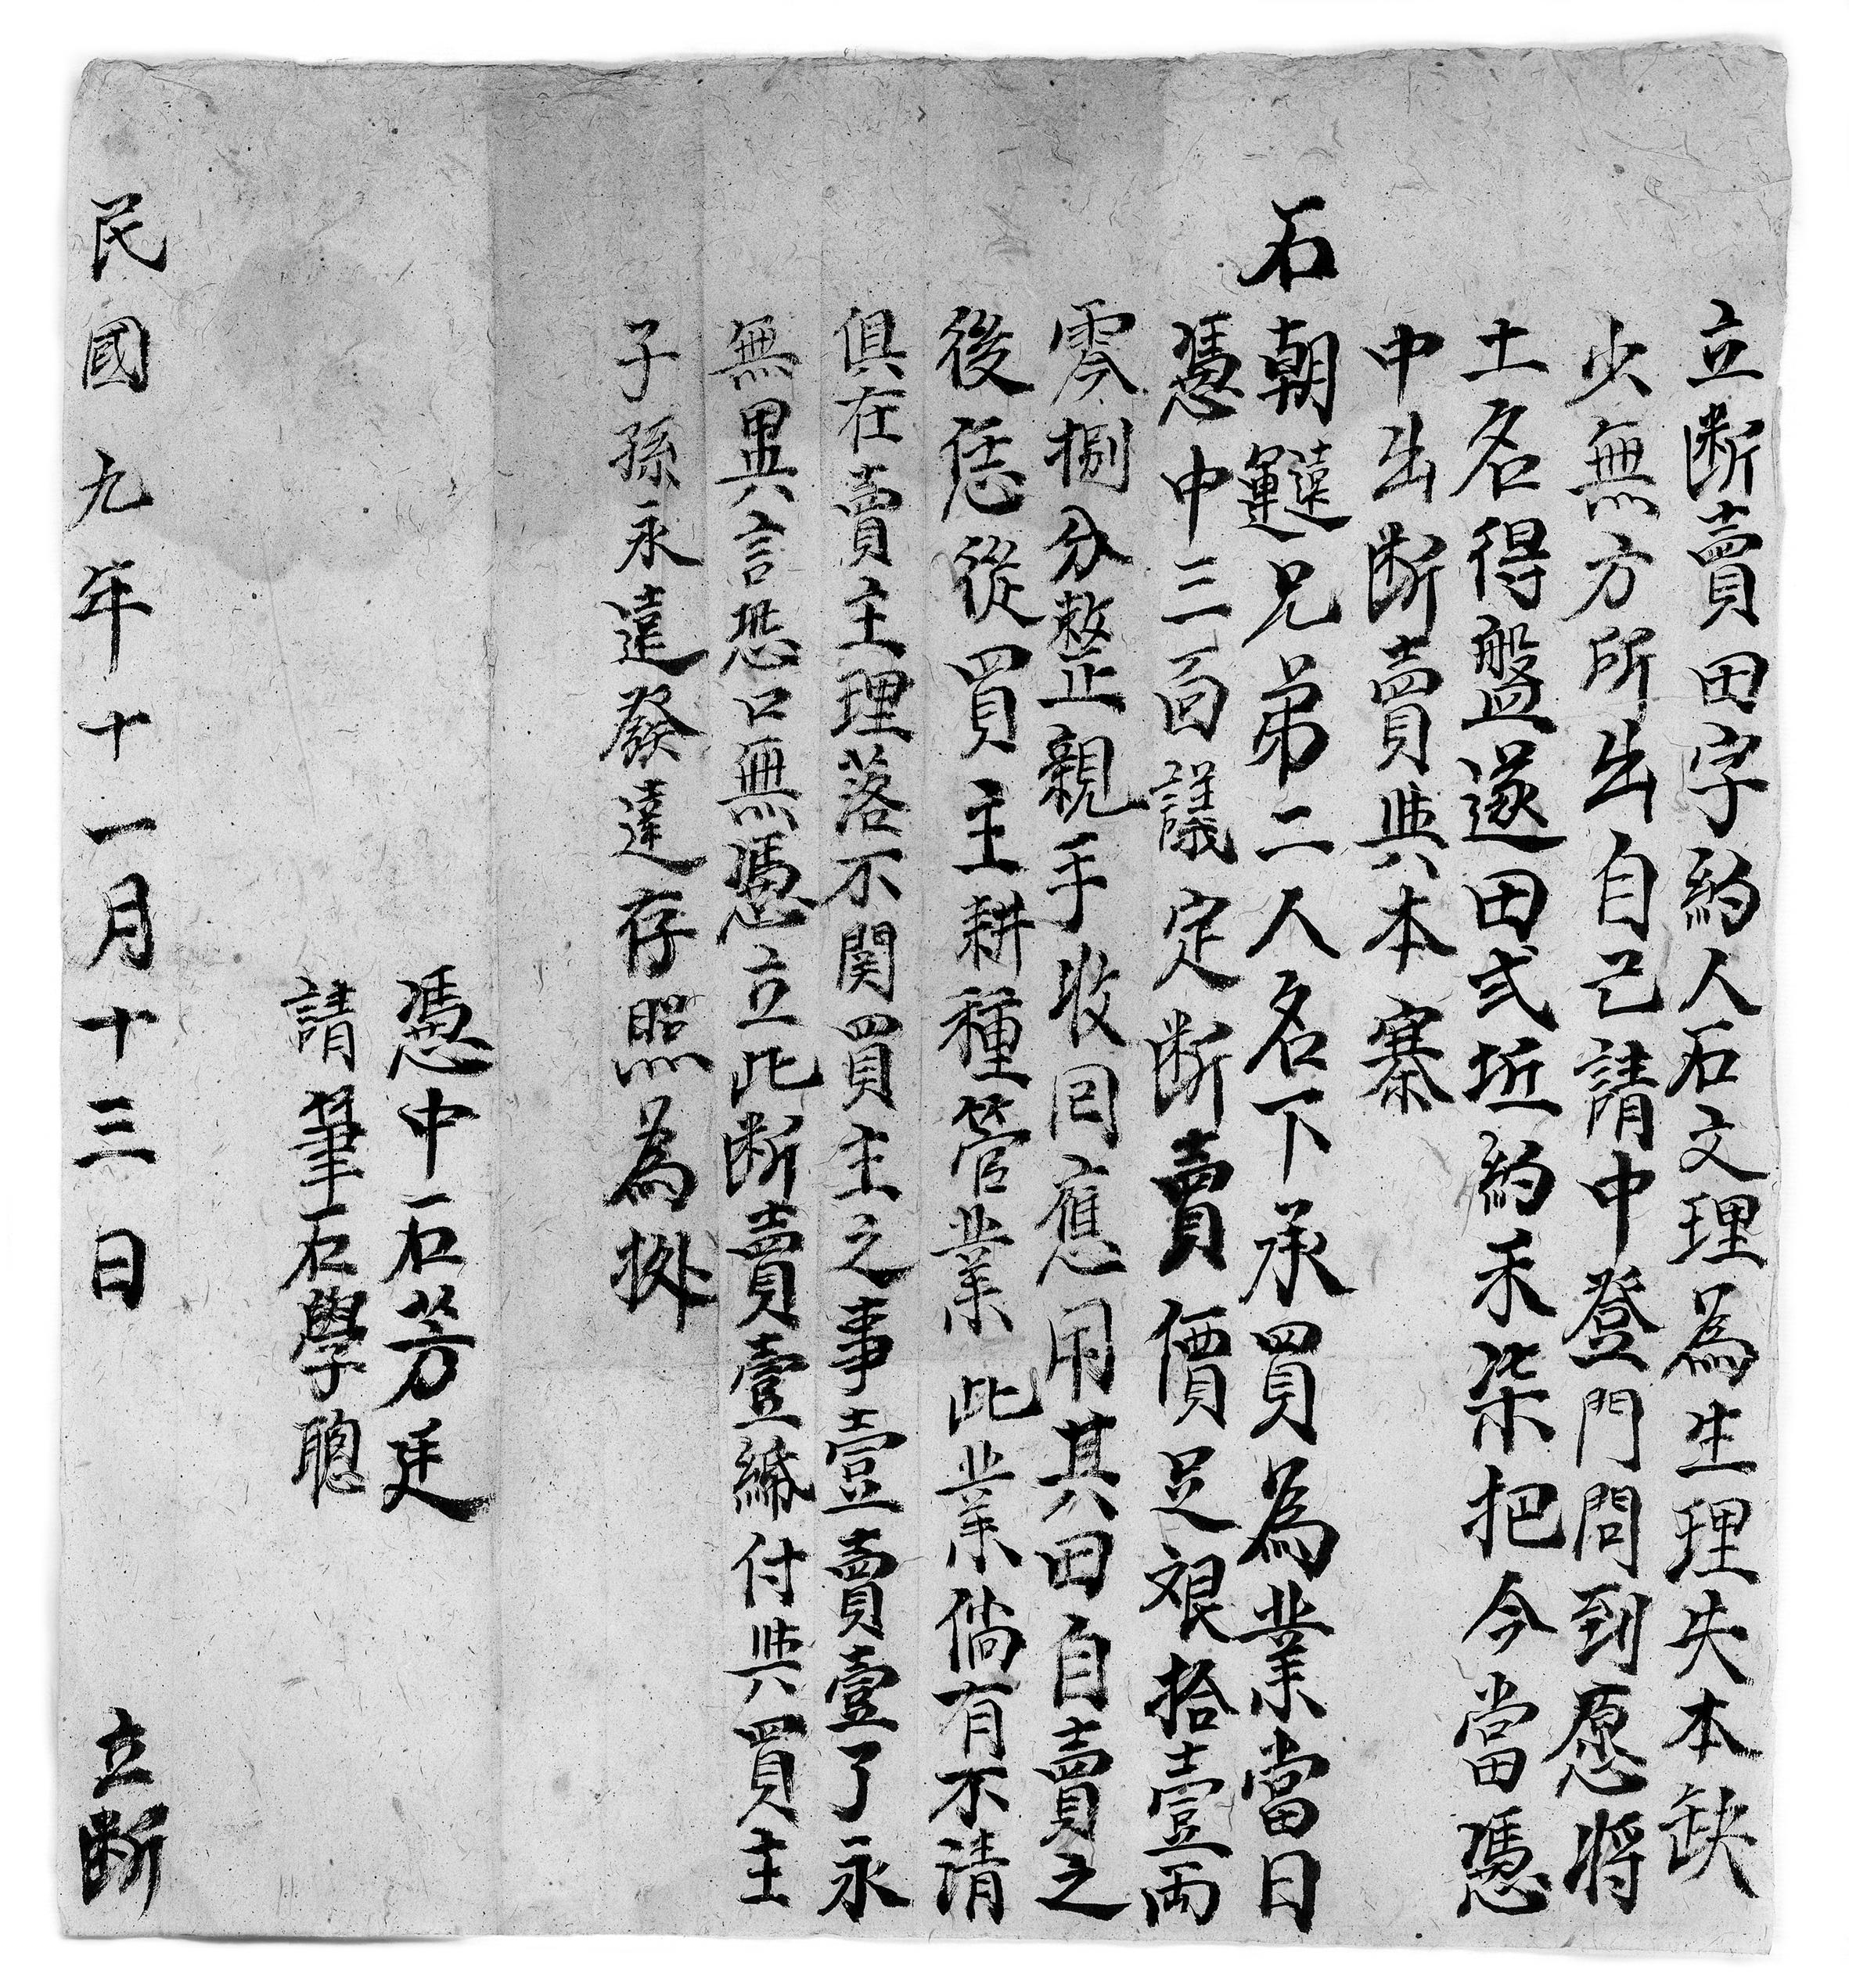 立断賣田字約人石文理為生理失本缺
少無方所出自己請中登門問到愿將
土名得盤遂田弍坵約禾柒把今當憑
中出断賣與本寨
石朝兄弟二人名下承買為業當日
憑中三面議定断賣價足艰拾壹両
零捌分整親手收囘應用其田自賣之
後恁從買主耕種管業此業倘有不清
俱在賣主理落不関買主之事壹賣壹了永
無異言恐口無憑立此断賣壹紙付與買主
子孫永遠發達存照為拠
憑中石芳廷
請筆石學聰
民國九年十一月十三日 立断